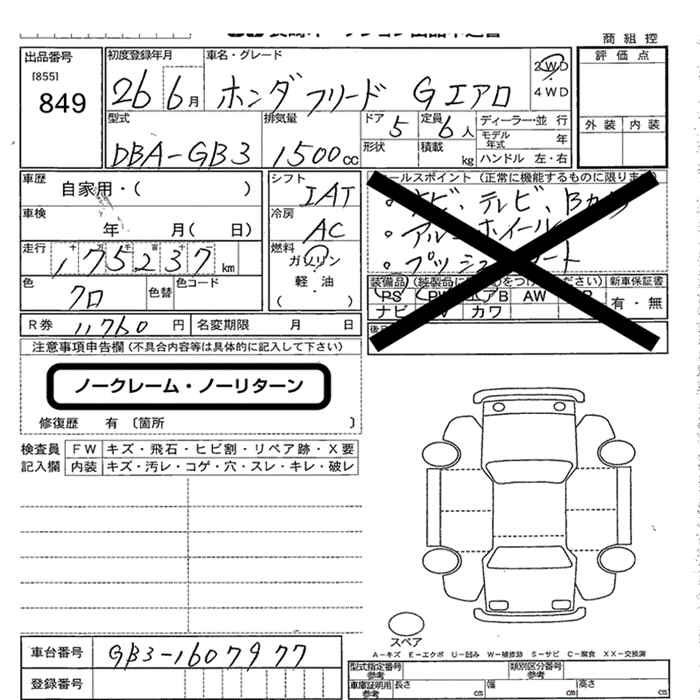 商 組 控
出品番号
[855]
849
初度登録年月
26 6月
車名・グレード
ホンダ フリード Gエアロ
2WD
4WD
評 価 点
外 装 内 装
型式
DBA-GB3
排気量
1500cc
ドア
5
定員
6人
形状
積載
kg
ディーラー・並 行
モデル年式 年
ハンドル 左・右
車歴
自家用・( )
車検
年 月( 日)
走行
十 万 千 百 十
175237km
色
クロ
色替
色コード
シフト
IAT
冷房
AC
燃料
ガソリン
軽・油
( )
セールスポイント (正常に機能するものに限ります)
ナビ、テレビ、Bカメラ
アルミホイール
装備品
PS PW エアB AW
ナビ カワ
新車保証書
有・無
R券 11,760 円
名変期限 月 日
注意事項申告欄 (不具合内容等は具体的に記入して下さい)
ノークレーム・ノーリターン
修復歴 有 〔箇所 〕
検査員記入欄
FW キズ・飛石・ヒビ割・リペア跡・X要
内装 キズ・汚レ・コゲ・穴・スレ・キレ・破レ
スペア
A-キズ E-エクボ U-凹み W-補修跡 S-サビ C-腐食 XX-交換済
車台番号 GB3-1607977
登録番号
型式指定番号 参考
類別区分番号 参考
車庫証明用 参考 長さ cm 幅 cm 高さ cm